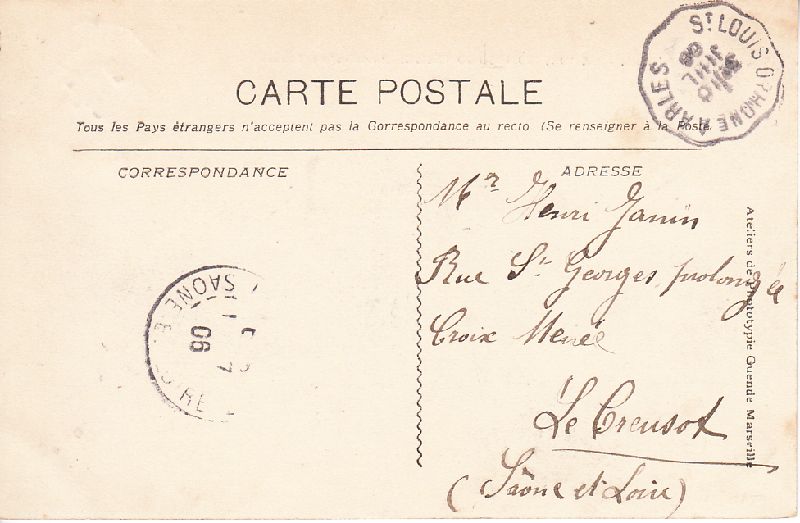 CARTE POSTALE
Tous les Pays étrangers n'acceptent pas la Correspondance au recto (Se renseigner à la Poste.
CORRESPONDANCE
ADRESSE
Mr Henri Janin
Rue St Georges prolongée
Croix Menée
Le Creusot
(Saône et Loire)
Ateliers de Phototypie Guende Marseille
ST LOUIS D RHONE A ARLES
JUIL
SAONE &
06